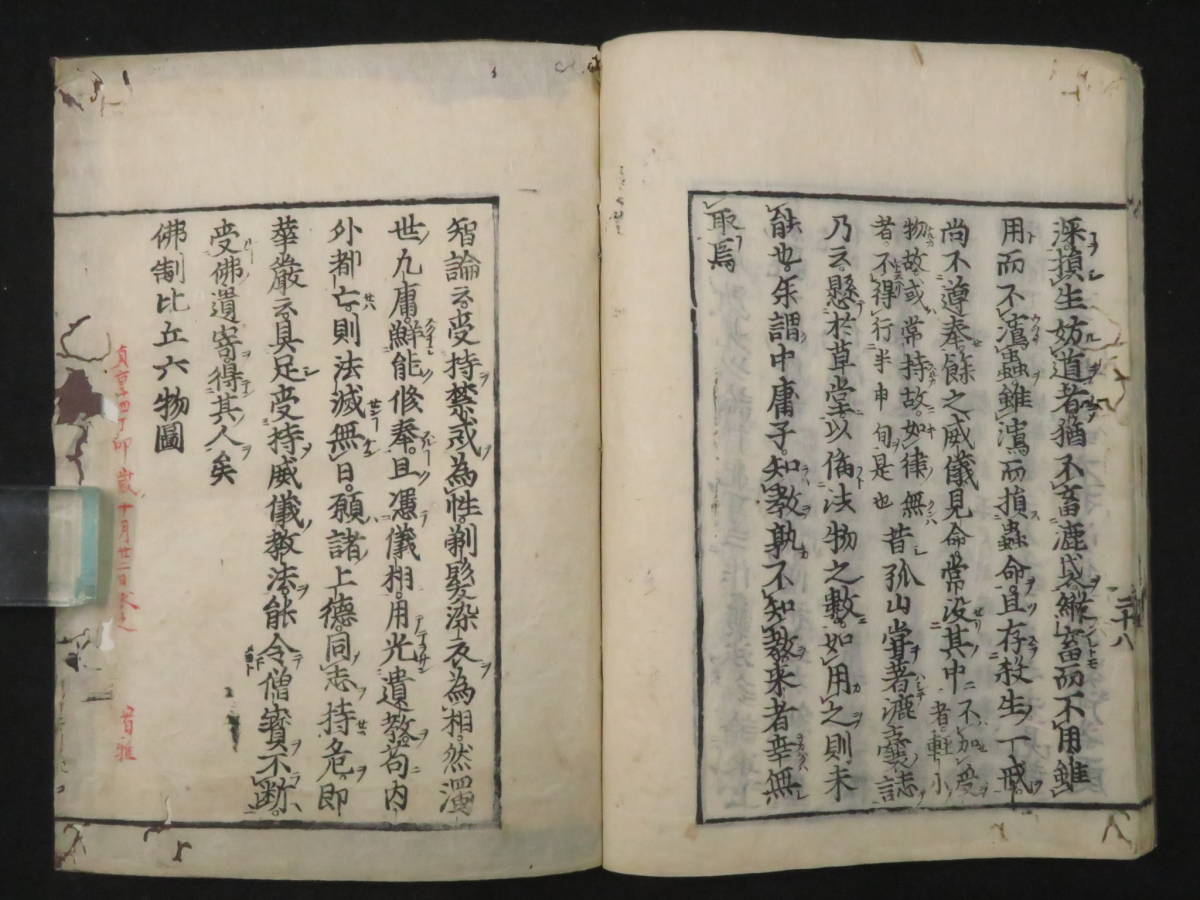 二十八
深損生妨道者猶不畜漉袋縱畜而不用雖
用而不瀉蟲雖瀉而損蟲命且存殺生一戒
尚不遵奉餘之威儀見命常沒其中不加受者輕小
物故或常持故如律無者不得行半由旬是也昔孤山嘗著漉囊誌
乃云懸於草堂以備法物之數如用之則未
能也年謂中庸子知教孰不知教來者幸無
取焉
智論云受持禁戒為性剃髮染衣為相然濁
世凡庸鮮能修奉且憑儀相用光遺教苟內
外都亡則法滅無日願諸上德同志持危即
華嚴云具足受持威儀教法能令僧寶不斷
受佛遺寄得其人矣
佛制比丘六物圖
貞享四丁卯歲十月廿二日求之